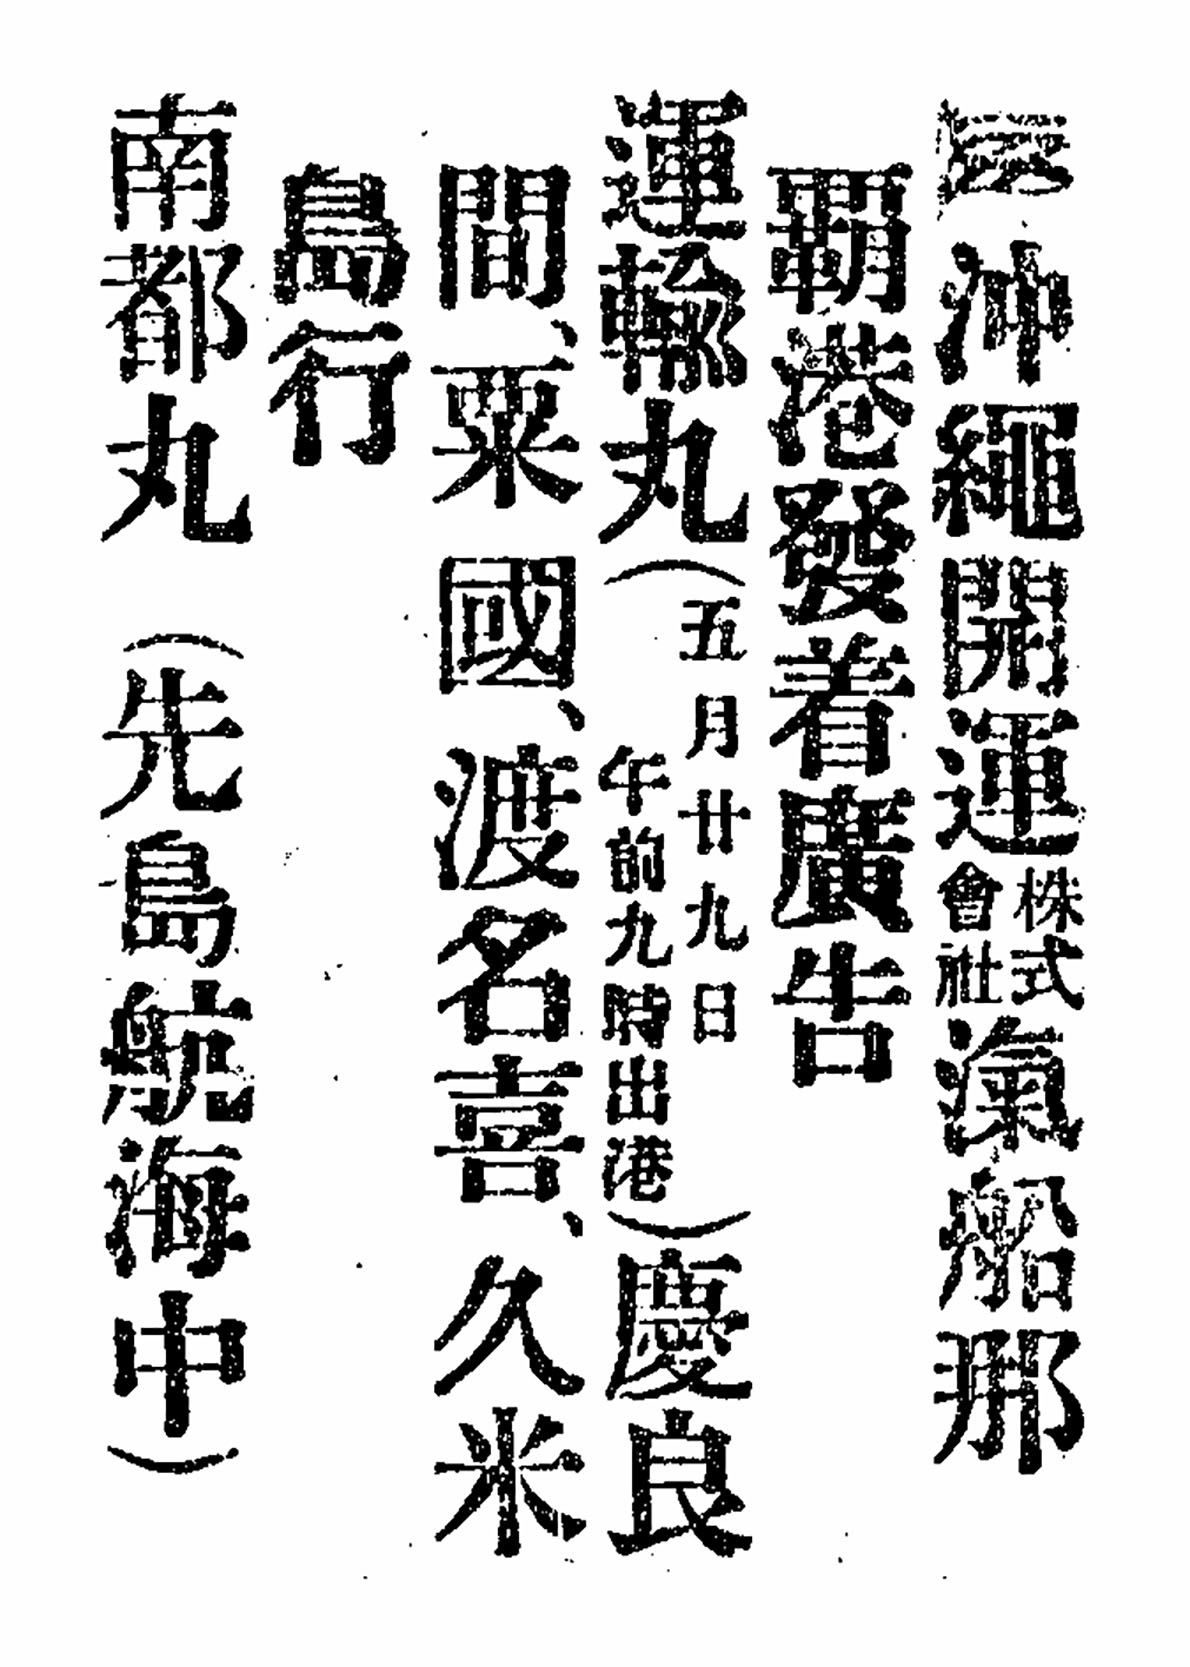 沖繩開運株式會社滊船那
覇港發着廣告
運輸丸（五月廿九日午前九時出港）慶良
間、粟國、渡名喜、久米
島行
南都丸（先島航海中）